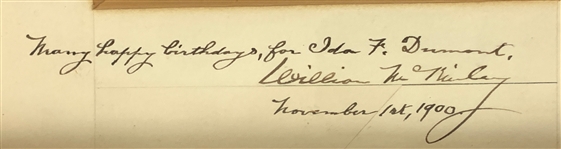 Many happy birthdays, for Ida F. Dumont.
William McKinley
November 1st, 1900.